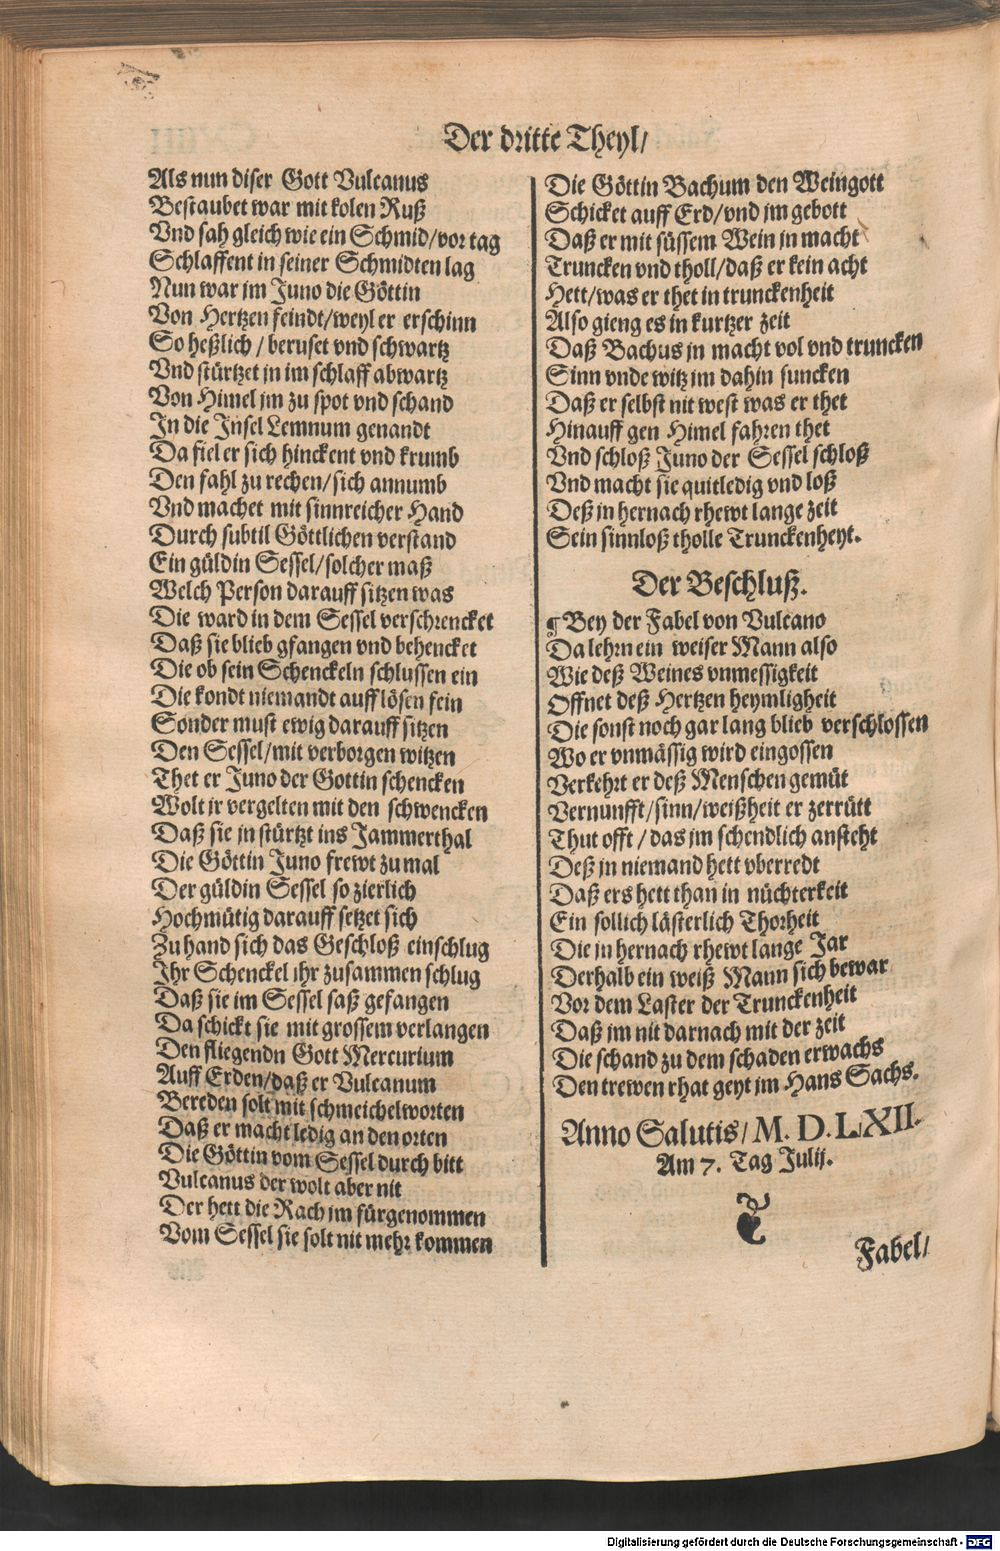 Der dritte Theyl/
Als nun diser Gott Vulcanus
Bestaubet war mit kolen Ruß
Vnd sah gleich wie ein Schmid/vor tag
Schlaffent in seiner Schmidten lag
Nun war jm Juno die Göttin
Von Hertzen feindt/weyl er erschinn
So heßlich/beruset vnd schwartz
Vnd stürtzet jn im schlaff abwartz
Von Himel jm zu spot vnd schand
In die Insel Lemnum genandt
Da fiel er sich hinckent vnd krumb
Den fahl zu rechen/sich annumb
Vnd machet mit sinnreicher Hand
Durch subtil Göttlichen verstand
Ein güldin Sessel/solcher maß
Welch Person darauff sitzen was
Die ward in dem Sessel verschrencket
Daß sie blieb gfangen vnd behencket
Die ob sein Schenckeln schlussen ein
Die kondt niemandt auff lösen fein
Sonder must ewig darauff sitzen
Den Sessel/mit verborgen witzen
Thet er Juno der Gottin schencken
Wolt jr vergelten mit den schwencken
Daß sie jn stürtzt ins Jammerthal
Die Göttin Juno frewt zu mal
Der güldin Sessel so zierlich
Hochmütig darauff setzet sich
Zu hand sich das Geschloß einschlug
Ihr Schenckel ihr zusammen schlug
Daß sie im Sessel saß gefangen
Da schickt sie mit grossem verlangen
Den fliegendn Gott Mercurium
Auff Erden/daß er Vulcanum
Bereden solt mit schmeichelworten
Daß er macht ledig an den orten
Die Göttin vom Sessel durch bitt
Vulcanus der wolt aber nit
Der hett die Rach jm fürgenommen
Vom Sessel sie solt nit mehr kommen
Die Göttin Bachum den Weingott
Schicket auff Erd/vnd jm gebott
Daß er mit süssem Wein jn macht
Truncken vnd tholl/daß er kein acht
Hett/was er thet in trunckenheit
Also gieng es in kurtzer zeit
Daß Bachus jn macht vol vnd truncken
Sinn vnde witz jm dahin suncken
Daß er selbst nit west was er thet
Hinauff gen Himel fahren thet
Vnd schloß Juno der Sessel schloß
Vnd macht sie quitledig vnd loß
Deß jn hernach rhewt lange zeit
Sein sinnloß tholle Trunckenheyt.
Der Beschluß.
¶ Bey der Fabel von Vulcano
Da lehrn ein weiser Mann also
Wie deß Weines vnmessigkeit
Offnet deß Hertzen heymligheit
Die sonst noch gar lang blieb verschlossen
Wo er vnmässig wird eingossen
Verkehrt er deß Menschen gemüt
Vernunfft/sinn/weißheit er zerrütt
Thut offt/das jm schendlich ansteht
Deß jn niemand hett vberredt
Daß ers hett than in nüchterkeit
Ein sollich lästerlich Thorheit
Die jn hernach rhewt lange Jar
Derhalb ein weiß Mann sich bewar
Vor dem Laster der Trunckenheit
Daß jm nit darnach mit der zeit
Die schand zu dem schaden erwachs
Den trewen rhat geyt jm Hans Sachs.
Anno Salutis/M. D. LXII.
Am 7. Tag Julij.
Fabel/
Digitalisierung gefördert durch die Deutsche Forschungsgemeinschaft - DFG